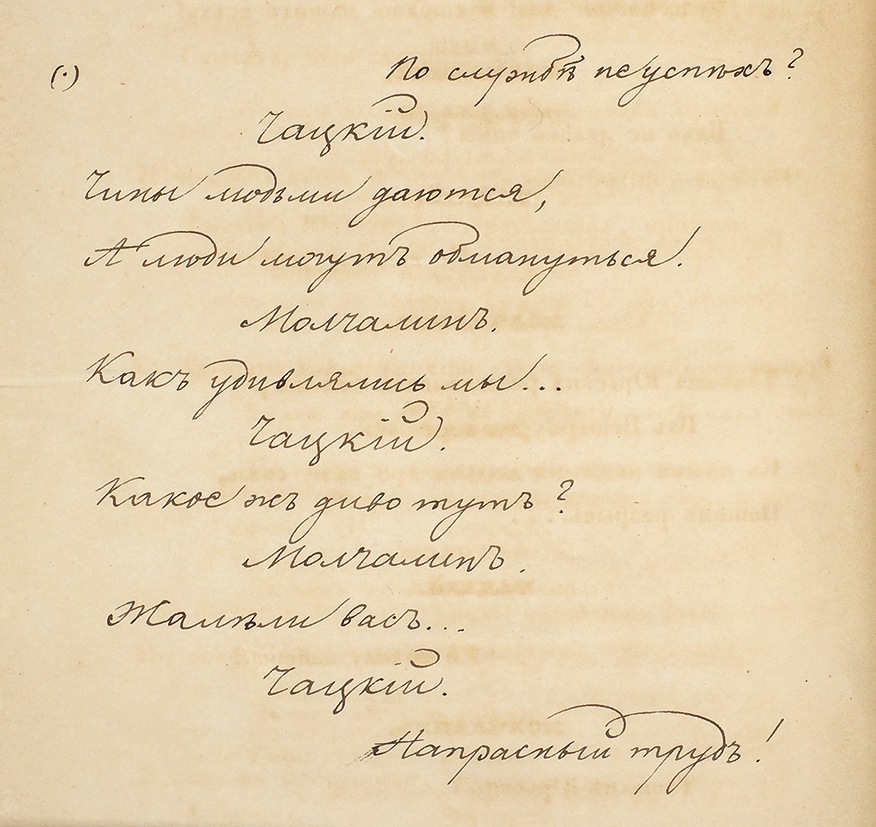 (·) По службѣ неуспѣхъ?
Чацкій.
Чины людьми даются,
А люди могутъ обмануться!
Молчалинъ.
Какъ удивлялись мы...
Чацкій.
Какое жъ диво тутъ?
Молчалинъ.
Жалѣли васъ...
Чацкій.
Напрасный трудъ!